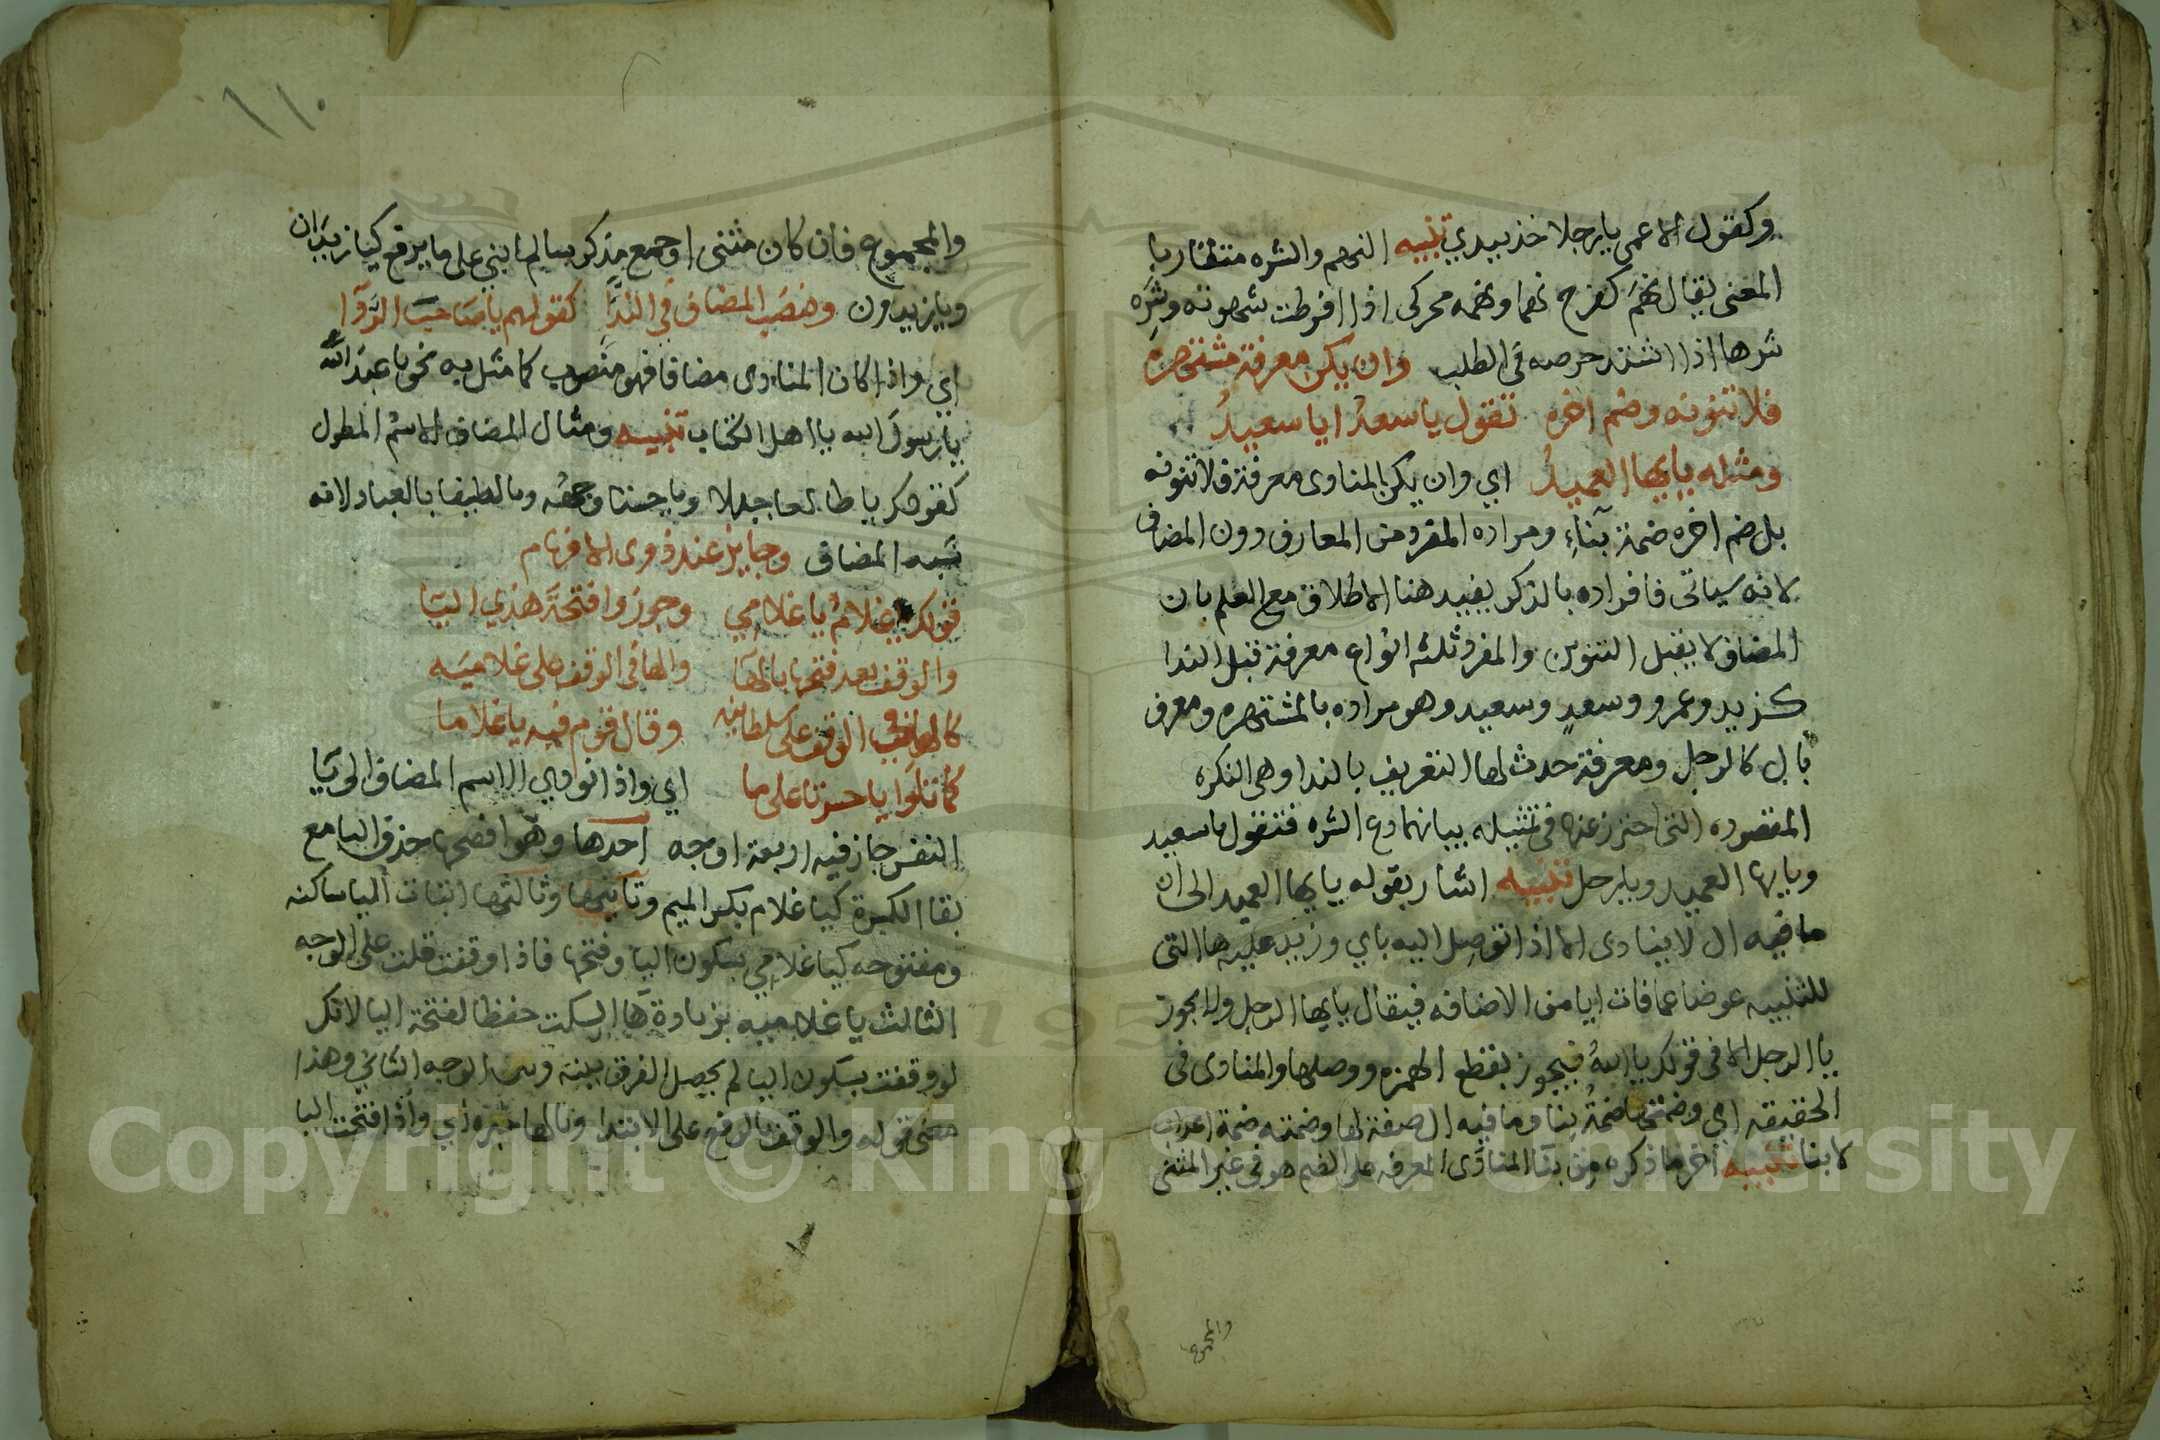 وكقول الاعمى يا رجلا خذ بيدي تنبيه النهم والشره متقاربا
المعنى يقال نهم كفرح نهما ونهمه محركى اذا افرطت شهوته وشره
شرها اذا اشتد حرصه في الطلب وان يكن معرفة مشتهره
فلا تنونه وضم اخره تقول يا سعد ايا سعيد
ومثله يايها العميد اي وان يكن المنادى معرفة فلا تنونه
بل ضم اخره ضمة بناء ومراده المفرد من المعارف دون المضاف
لانه سياتى فافراده بالذكر يفيد هنا الاطلاق مع العلم بان
المضاف لا يقبل التنوين والمفرد ثلثه انواع معرفة قبل الندا
كزيد وعمرو وسعد وسعيد وهو مراده بالمشتهره ومعرف
بال كالرجل ومعرفة حدث لها التعريف بالندا وهى النكره
المقصوده التى احترز عنها في تمثيله بيا نهما دع الشره فتقول يا سعيد
ويايها العميد ويا رجل تنبيه اشار بقوله يايها العميد الى ان
ما فيه ال لا ينادى الا اذا توصل اليه باي وزيد عليه ها التى
للتنبيه عوضا عما فات ايا من الاضافه فيقال يايها الرجل ولا يجوز
يا الرجل الا في قولك يا الله فيجوز بقطع الهمزه ووصلها والمنادى في
الحقيقه اي وضمتها ضمة بنا وما فيه ال صفة لها وضمته ضمة اعراب
لا بنا تنبيه اخر ما ذكره من بنا المنادى المعرفه على الضم هو في غير المثنى
والمجموع
١١٠
والمجموع فان كان مثنى او جمع مذكر سالم بني على ما يرفع كيا زيدان
ويا زيدون ونصب المضاف في الندا كقولهم يا صاحب الردآ
اي واذا كان المنادى مضافا فهو منصوب كما مثل به نحو يا عبد الله
يا رسول الله يا اهل الكتاب تنبيه ومثال المضاف الاسم المطول
كقولك يا طالعا جبلا ويا حسنا وجهه ويا لطيفا بالعباد لانه
شبه المضاف وجايز عند ذوى الافهام
قولك يا غلام يا غلامي وجوزوا فتحة هذي اليا
والوقف بعد فتحها بالها والها في الوقف على غلاميه
كالها في الوقف على سلطانيه وقال قوم فيه يا غلاما
كما تلوا يا حسرتا على ما اي واذا نودي الاسم المضاف الى يا
النفس جاز فيه اربعة اوجه احدها وهو افصحها حذف اليا مع
بقا الكسرة كيا غلام بكسر الميم وثانيها وثالثها اثبات اليا ساكنه
ومفتوحه كيا غلامي بسكون اليا وفتحها فاذا وقفت قلت على الوجه
الثالث يا غلاميه بزيادة ها السكت حفظا لفتحة اليا لانك
لو وقفت بسكون اليا لم يحصل الفرق بينه وبين الوجه الثاني وهذا
معنى قوله والوقف بالرفع على الابتدا وبالها خبره اي واذا فتحت اليا